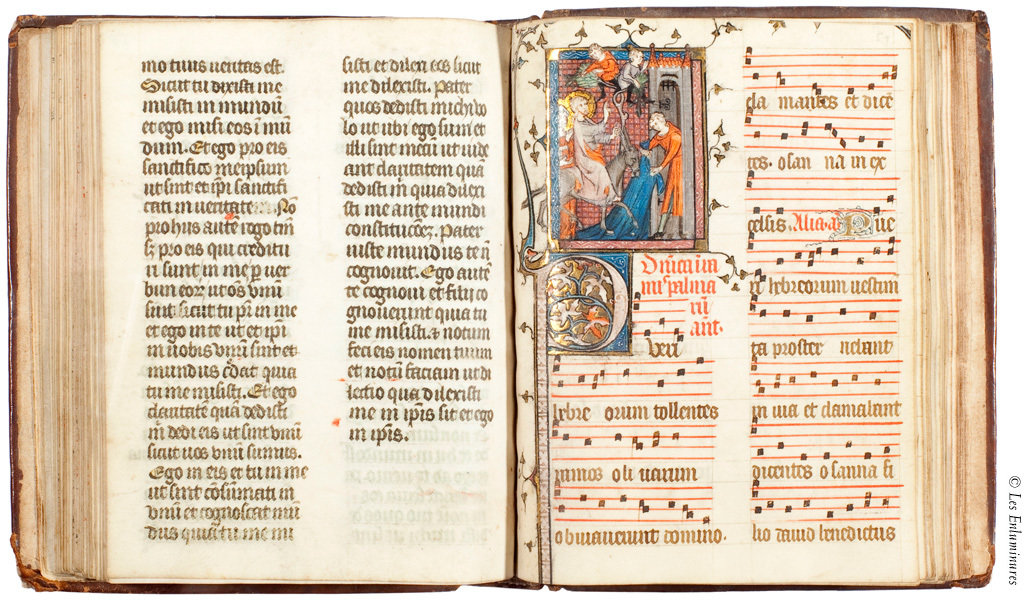 mo tuus ueritas est.
Sicut tu dixisti me
misisti in mundũ
et ego misi eos ĩ mũ
dum. Et ego pro eis
sanctifico meipsum
ut sint et ip̃i sanctifi
cati in ueritate. Nõ
pro hiis autẽ rogo tm̃
sꝫ pro eis qui creditu
ri sunt in me ꝑ uer
bum eoꝝ ut os vnũ
sint sicut tu pr̃ in me
et ego in te ut et ip̃i
in nobis vnũ sint et
mundus c̃dat quia
tu me misisti. Et ego
claritatẽ quã dedisti
m̃ dedi eis ut sint vnũ
sicut nos vnũ sumus.
Ego in eis et tu in me
ut sint cõsumati in
vnũ et cognoscat mũ
dus quia tu me mi
sisti et dilexi eos sicut
me dilexisti. Pater
quos dedisti michi vo
lo ut ubi ego sum et
illi sint mecũ ut uide
ant claritatem quã
dedisti m̃ quia dilexi
sti me ante mundi
constitucõeꝫ. Pater
iuste mundus te ñ
cognouit. Ego autẽ
te cognoui et filii co
gnouerunt quia tu
me misisti. et notum
feci eis nomen tuum
et notũ faciam ut di
lectio qua dilexisti
me in ip̃is sit et ego
in ip̃is.
Dñica in
ramis palma
rũ
ant.
Pueri
hebre orum tollentes
ramos oli uarum
obuiauerunt domino.
cla mantes et dicẽ
tes. osan na in ex
celsis. Alia a. Pue
ri hebreorum uestim
ta proster nebant
in uia et clamabant
dicentes osanna fi
lio dauid benedictus
© Les Enluminures